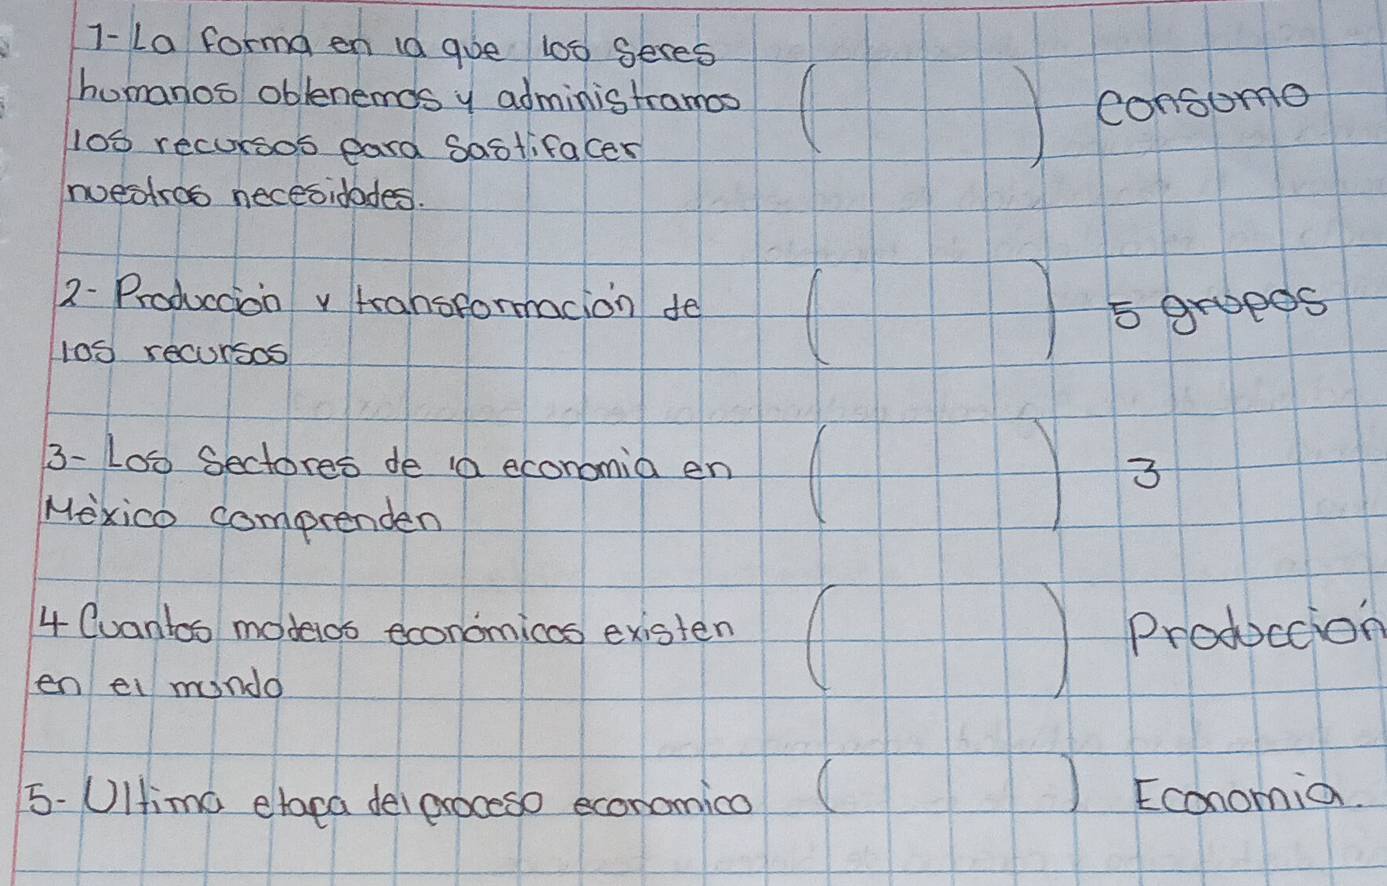 1- La forma en la que los seres
humanos obtenemos y administramos ( ) consumo
los recursos para sastifacer
nuestras necesidades.
2- Producción y transformación de ( ) 5 grupos
los recursos
3- Los sectores de la economia en ( ) 3
México comprenden
4 Cuantos modelos económicos existen ( ) Producción
en el mundo
5- Ultima etapa del proceso economico ( ) Economia.